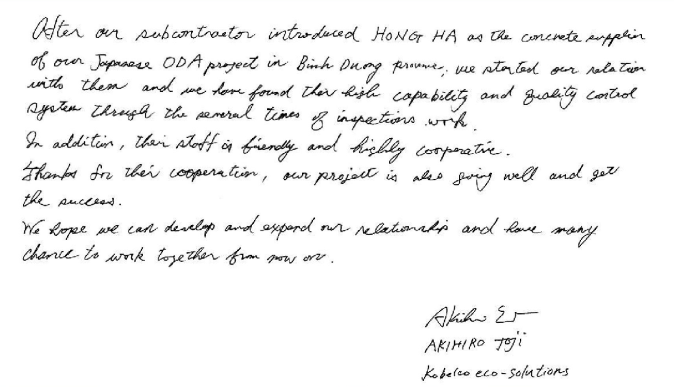 After our subcontractor introduced HONG HA as the concrete supplier
of our Japanese ODA project in Binh Duong provine, we started our relation
with them and we have found their high capability and quality control
system through the several times of inspections work.
In addition, their staff is friendly and highly cooperative.
Thanks for their cooperation, our project is also going well and get
the success.
We hope we can develop and expend our relationship and have many
chance to work together from now on.
Akihiro
AKIHIRO JOJI
Kobelco eco-solutions